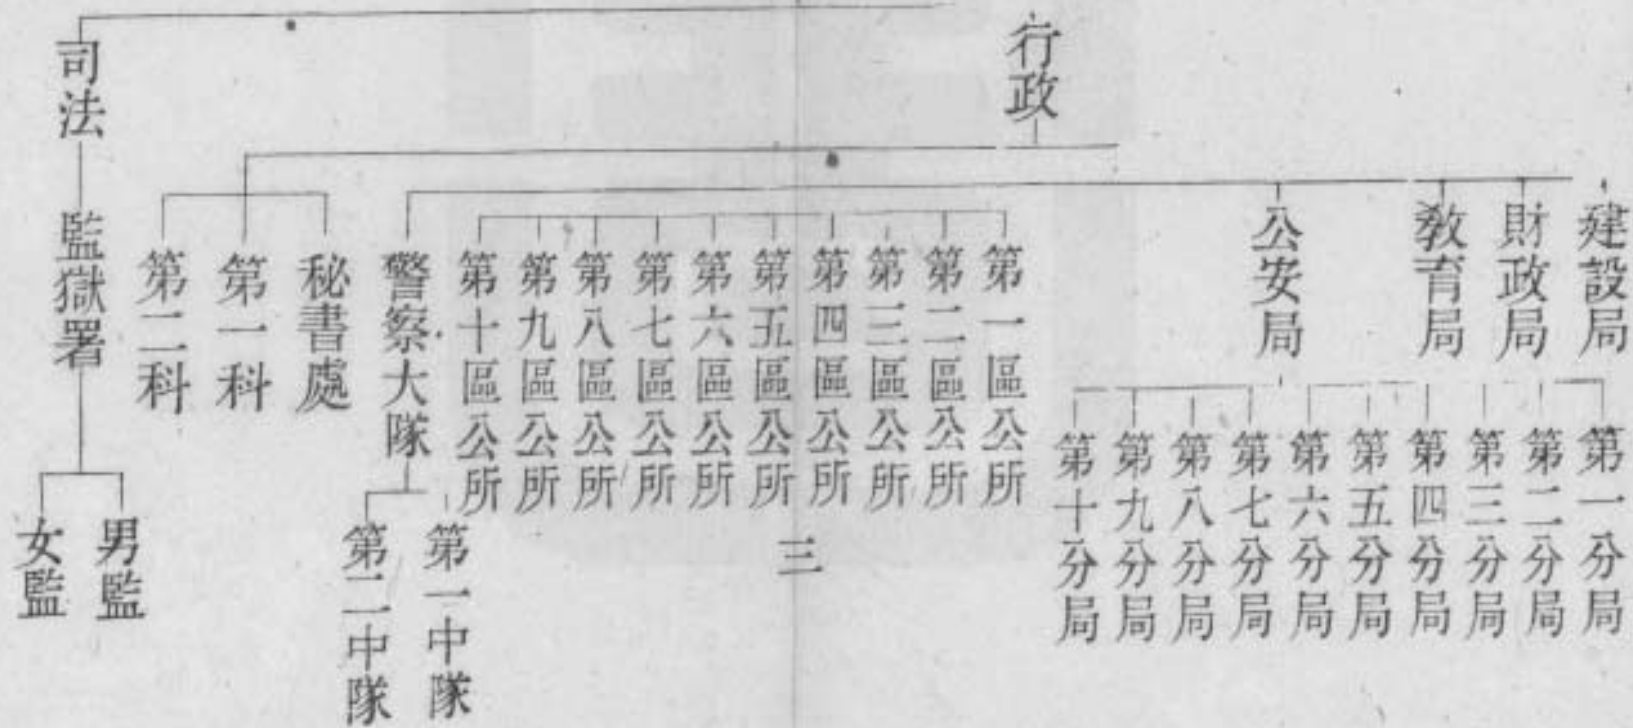 行政
建設局
財政局
教育局
公安局
第一分局
第二分局
第三分局
第四分局
第五分局
第六分局
第七分局
第八分局
第九分局
第十分局
第一區公所
第二區公所
第三區公所
第四區公所
第五區公所
第六區公所
第七區公所
第八區公所
第九區公所
第十區公所
警察大隊
第一中隊
第二中隊
秘書處
第一科
第二科
司法
監獄署
男監
女監
三